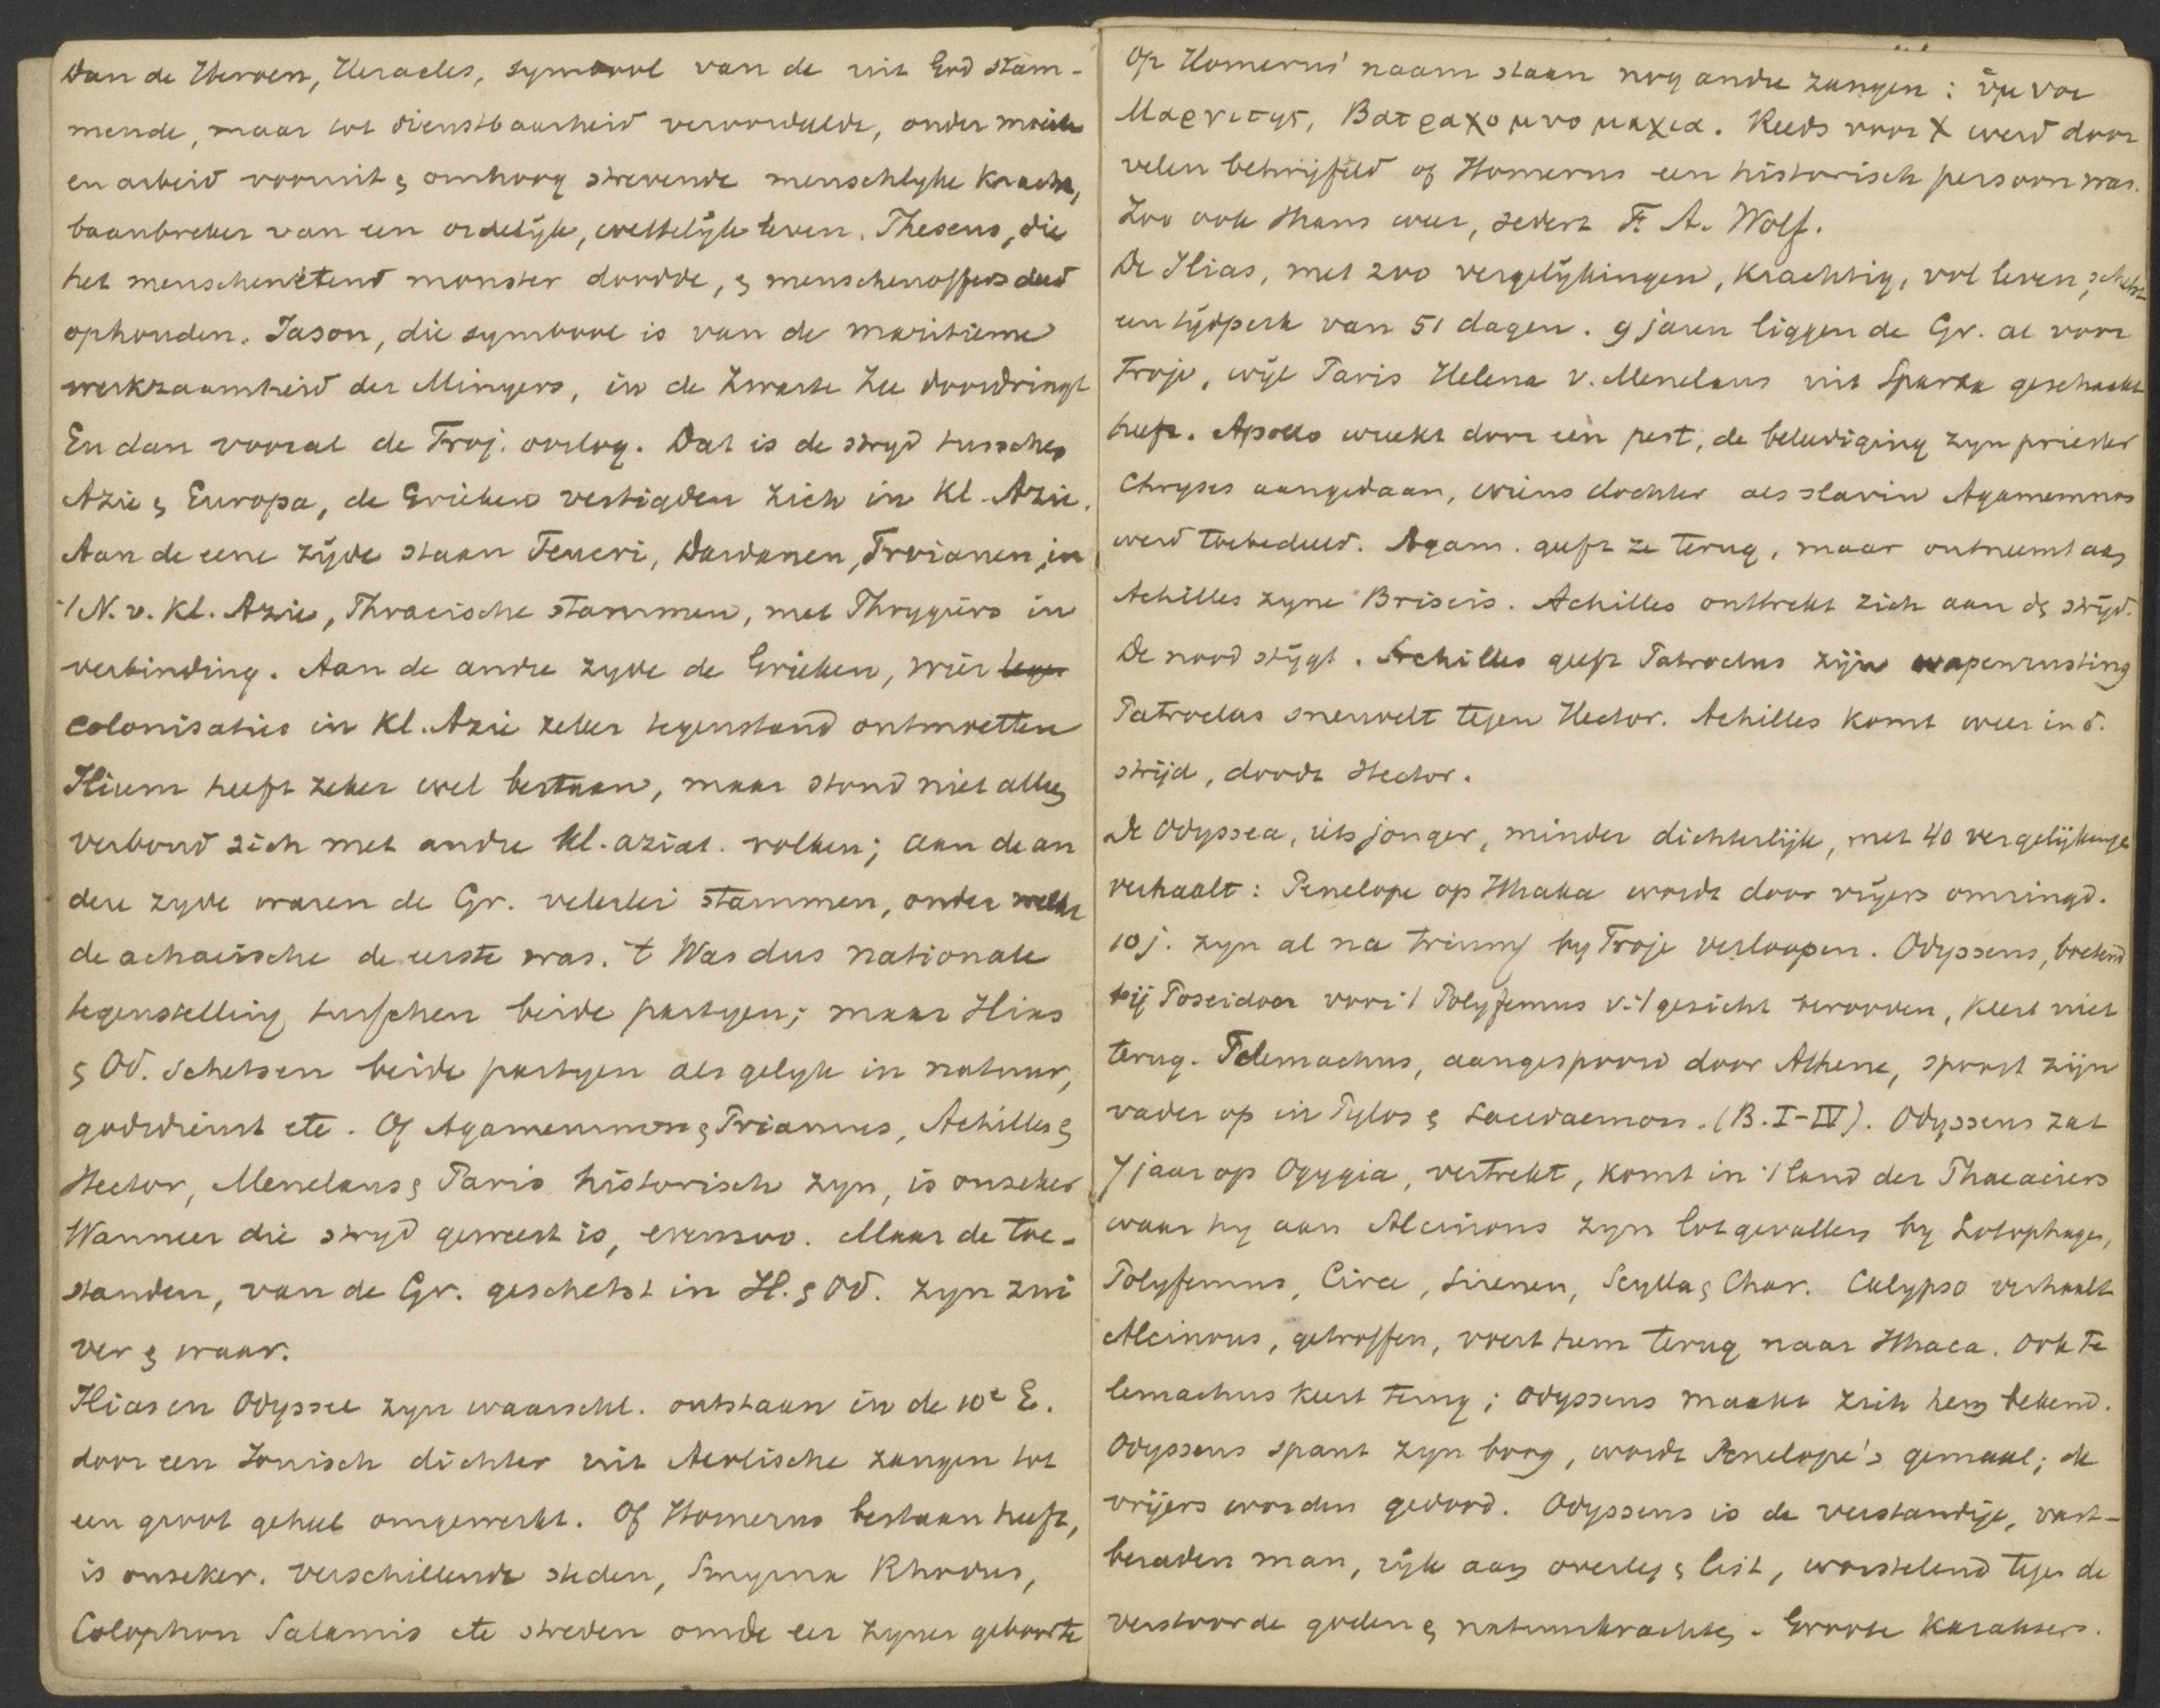 Dan de Heroen, Heracles, symbool van de uit God stam-
mende, maar tot dienstbaarheid veroordeelde, onder moeite
en arbeid vooruit & omhoog strevende menschlyke kracht,
baanbreker van een ordelyk, wettelyk leven. Theseus, die
het menschenetend monster doodde, & menschenoffers deed
ophouden. Jason, die symbool is van de maritieme
werkzaamheid der Minyers, in de Zwarte Zee doordringt
En dan vooral de Troj. oorlog. Dat is de stryd tusschen
Azie & Europa, de Grieken vestigden zich in Kl. Azie.
Aan de eene zÿde staan Teucri, Dardanen, Troianen, in
't N. v. Kl. Azie, Thracische stammen, met Phrygiërs in
verbinding. Aan de andre zyde de Grieken, wier
colonisaties in Kl. Azie zeker tegenstand ontmoetten
Ilium heeft zeker wel bestaan, maar stond niet alleen
verbond zich met andre kl. aziat. volken; aan de an
dere zyde waren de Gr. velerlei stammen, onder welke
de achaeische de eerste was. 't Was dus nationale
tegenstelling tusschen beide partyen; maar Ilias
& Od. schetsen beide partyen als gelyk in natuur,
godsdienst etc. Of Agamemnon & Priamus, Achilles &
Hector, Menelaus & Paris historisch zyn, is onzeker
Wanneer die stryd geweest is, evenzoo. Maar de toe-
standen, van de Gr. geschetst in Il. & Od. zyn zui
ver & waar.
Ilias en Odyssee zyn waarschl. ontstaan in de 10e E.
door een Ionisch dichter uit Aeolische zangen tot
een groot geheel omgewerkt. Of Homerus bestaan heeft,
is onzeker. Verschillende steden, Smyrna Rhodus,
Colophon Salamis etc streden om de eer zyner geboorte
Op Homerus' naam staan nog andre zangen: ὕμνοι
Μαργιτης, Βατραχομυομαχια. Reeds voor X werd door
velen betwijfeld of Homerus een historisch persoon was.
Zoo ook thans weer, sedert F. A. Wolf.
De Ilias, met 200 vergelÿkingen, krachtig, vol leven, schetst
een tÿdperk van 51 dagen. 9 jaren liggen de Gr. al voor
Troje, wÿl Paris Helena v. Menelaus uit Sparta geschaakt
heeft. Apollo wreekt door een pest, de beleediging zyn priester
Chryses aangedaan, wiens dochter als slavin Agamemnon
werd toebedeeld. Agam. geeft ze terug, maar ontneemt aan
Achilles zyne Briseis. Achilles onttrekt zich aan den strÿd.
De nood stÿgt. Achilles geeft Patroclus zijn wapenrusting
Patroclus sneuvelt tegen Hector. Achilles komt weer in d.
strijd, doodt Hector.
De Odyssea, iets jonger, minder dichterlijk, met 40 vergelijkingen
verhaalt: Penelope op Ithaka wordt door vrÿers omringd.
10 j. zyn al na triumf by Troje verloopen. Odysseus, boetend
bij Poseidon voor 't Polyfemus v. 't gezicht berooven, keert niet
terug. Telemachus, aangespoord door Athene, spoort zijn
vader op in Pylos & Lacedaemon. (B. I-IV). Odysseus zat
7 jaar op Ogygia, vertrekt, komt in 't land der Phaeaciers
waar hy aan Alcinous zyn lotgevallen by Lotophagen,
Polyfemus, Circe, Sirenen, Scylla & Char. Calypso verhaalt
Alcinous, getroffen, voert hem terug naar Ithaca. Ook Te
lemachus keert terug; Odysseus maakt zich hem bekend.
Odysseus spant zyn boog, wordt Penelope's gemaal; de
vrijers worden gedood. Odysseus is de verstandige, vast-
beraden man, rÿk aan overleg & list, worstelend tegen de
verstoorde goden & natuurkrachten. Groote karakters.